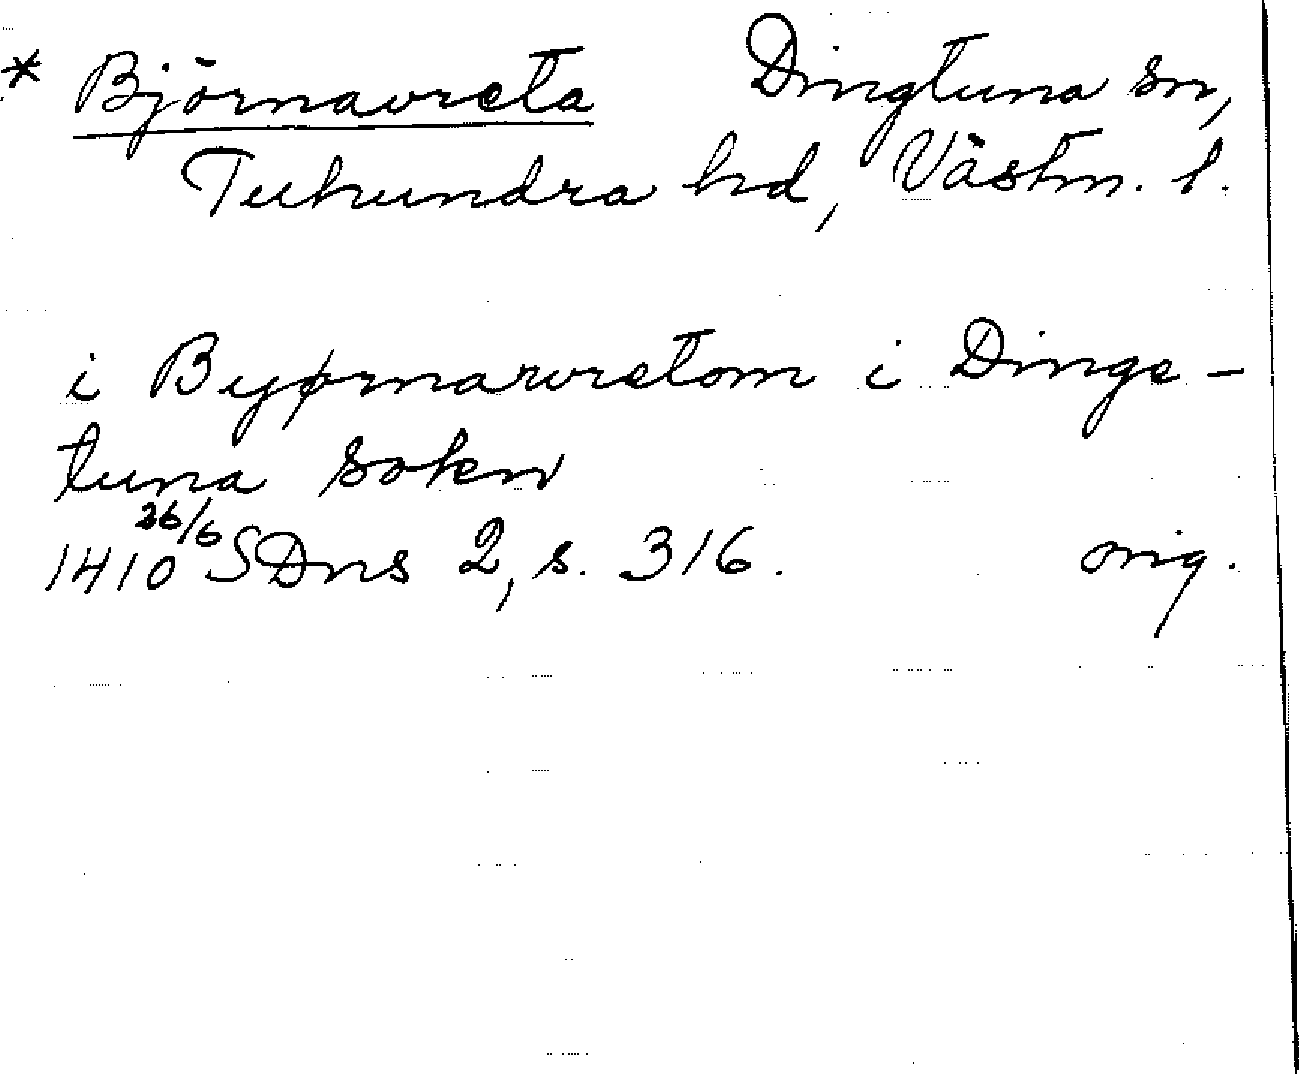 * Björnavreta Dingtuna sn,
Tuhundra hd, Västm. l.
i Byørnarvretom i Dinge-
tuna sokn
1410 26/6 SDns 2, s. 316. orig.